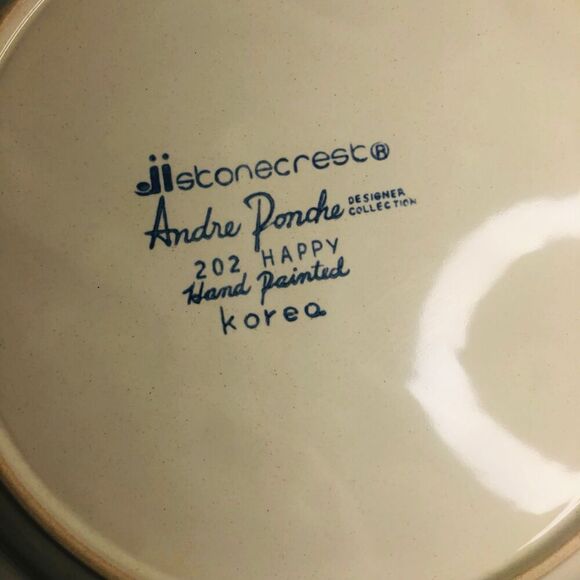 jistonecrest®
Andre Ponche DESIGNER COLLECTION
202 HAPPY
Hand Painted
korea